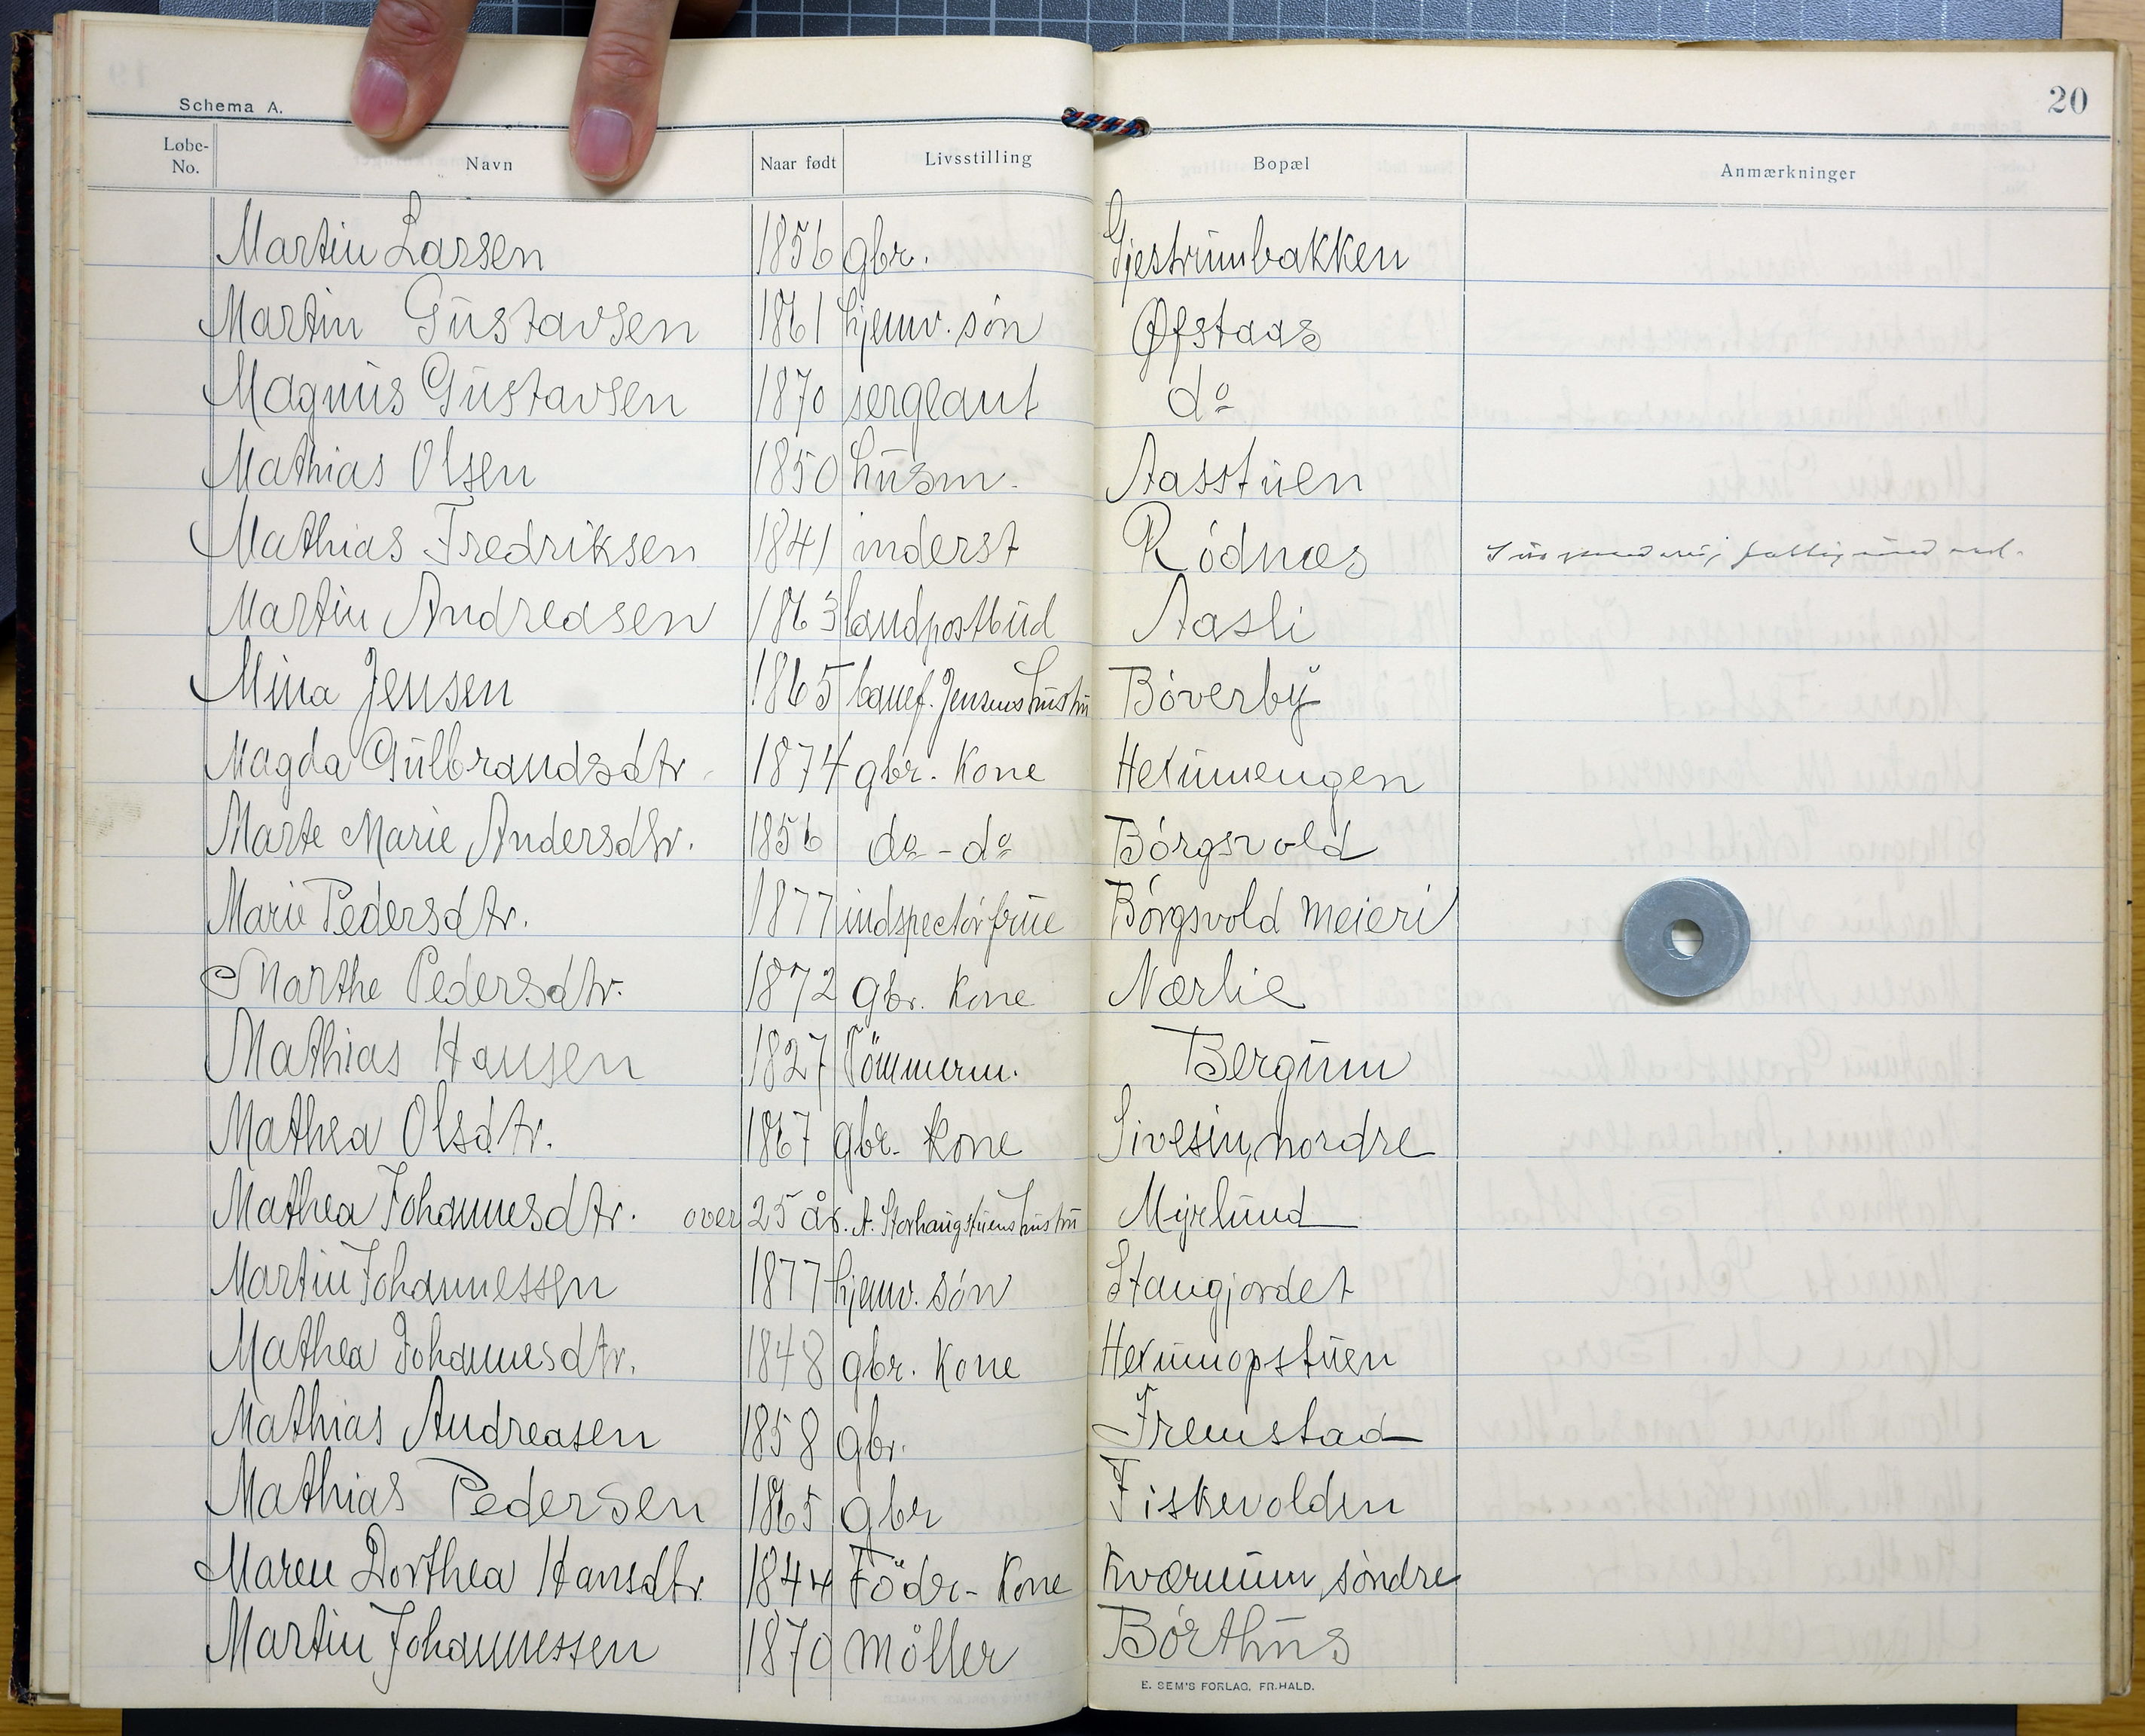 Schema A.
20
Løbe-No. Navn Naar født Livsstilling Bopæl Anmærkninger
Martin Larsen 1856 gbr. Gjestrumbakken
Martin Gustavsen 1861 hjemv. søn Øfstaas
Magnus Gustavsen 1870 sergeant do
Mathias Olsen 1850 husm. Aasstuen
Mathias Fredriksen 1841 inderst Rødnæs
Martin Andreasen 1863 landpostbud Aasli
Mina Jensen 1865 Jensens hustru Bøverby
Magda Gulbrandsdtr. 1874 gbr. Kone Hexumengen
Marte Marie Andersdtr. 1856 do - do Børgsvold
Marie Pedersdtr. 1877 indspectørfrue Børgsvold Meieri
Marthe Pedersdtr. 1872 gbr. Kone Nærlie
Mathias Hansen 1827 Tömmerm. Bergum
Mathea Olsdtr. 1867 gbr. Kone Sivesin, nordre
Mathea Johannesdtr. over 25 år. A. Storhaugstuens hustru Myrlund
Martin Johannessen 1877 hjemv. søn Staugjordet
Mathea Johannesdtr. 1848 gbr. Kone Hexumopstuen
Mathias Andreasen 1858 gbr. Fremstad
Mathias Pedersen 1865 gbr Fiskevolden
Maren Dorthea Hansdtr. 1844 Föder- Kone Kværnum, søndre
Martin Johannessen 1870 Møller Børthus
E. SEM'S FORLAG, FR.HALD.